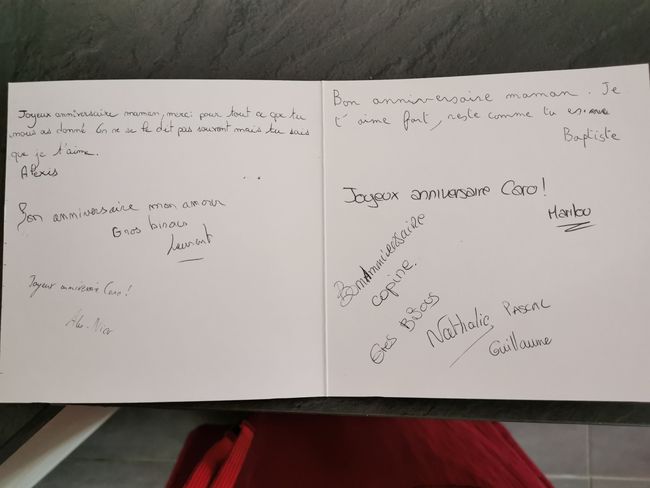 Joyeux anniversaire maman, merci pour tout ce que tu
nous as donné On ne se le dit pas souvent mais tu sais
que je t'aime.
Alexis
Bon anniversaire mon amour
Gros bisous
Laurent
Joyeux anniversaire Caro!
Bon anniversaire maman. Je
t'aime fort, reste comme tu es
Baptiste
Joyeux anniversaire Caro!
Marilou
Bon Anniversaire
copine.
Gros Bisous
Nathalie PASCAL
Guillaume